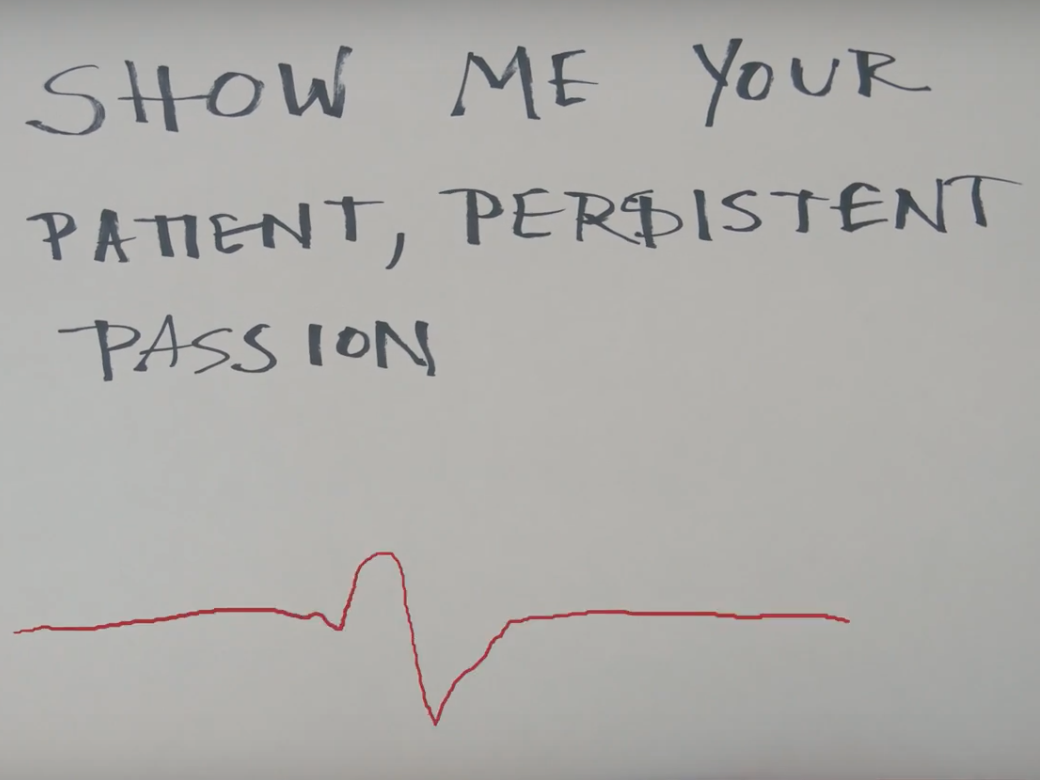 SHOW ME YOUR
PATIENT, PERSISTENT
PASSION